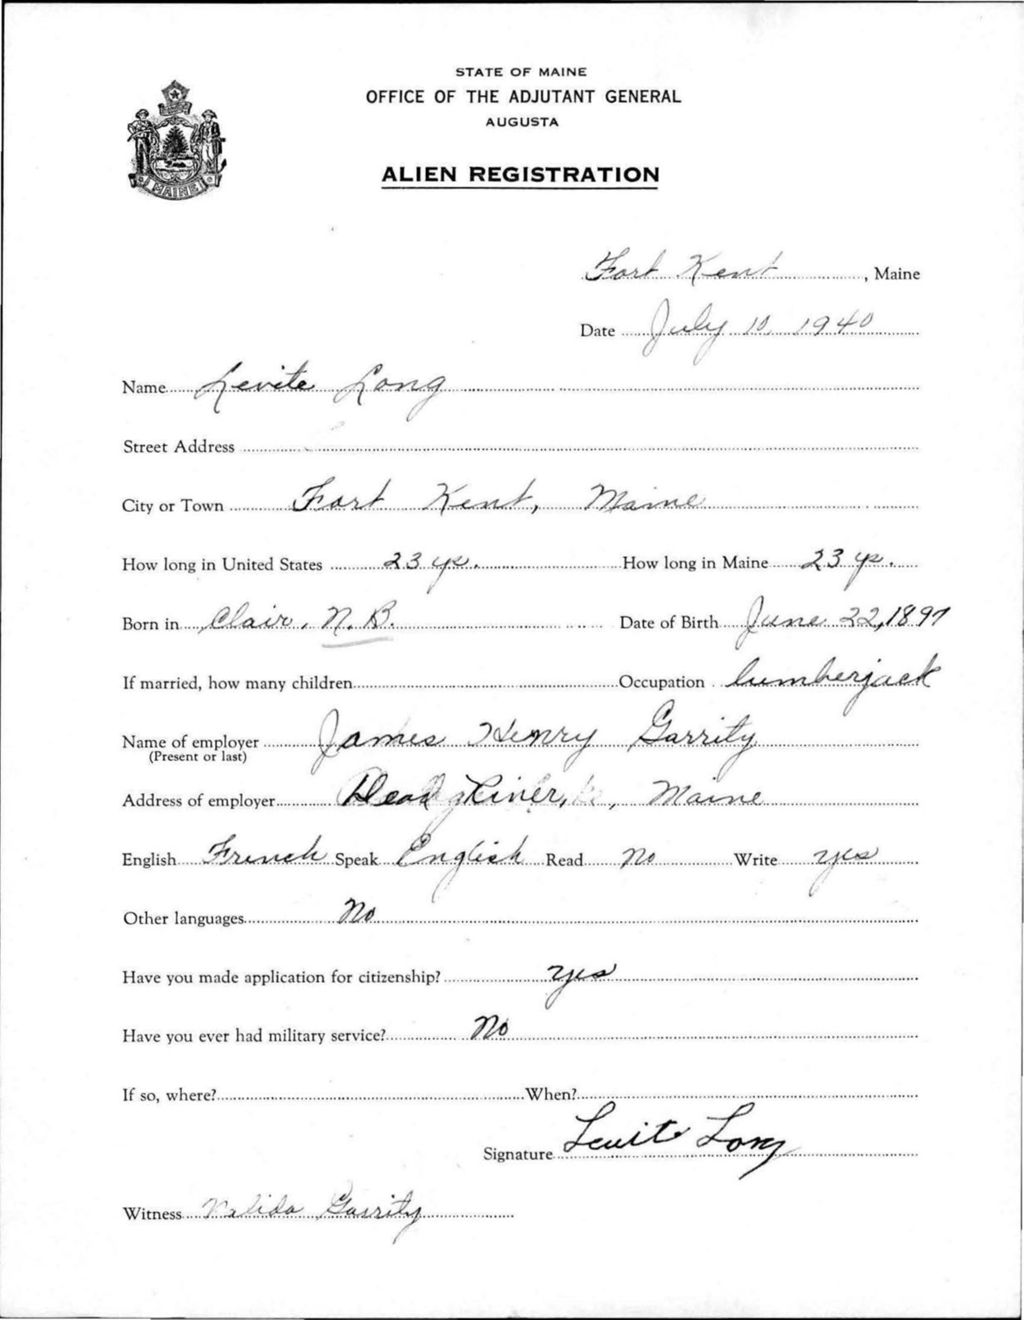 STATE OF MAINE
OFFICE OF THE ADJUTANT GENERAL
AUGUSTA
ALIEN REGISTRATION
MAINE
Fort Kent, Maine
Date July 10, 1940
Name Levite Long
Street Address
City or Town Fort Kent, Maine
How long in United States 23 yr. How long in Maine 23 yr.
Born in Clair, N. B. Date of Birth June 22, 1897
If married, how many children Occupation lumberjack
Name of employer James Henry Garrity
(Present or last)
Address of employer Dead River, Maine
English French Speak English Read No Write yes
Other languages No
Have you made application for citizenship? yes
Have you ever had military service? No
If so, where? When?
Signature Levite Long
Witness Garrity